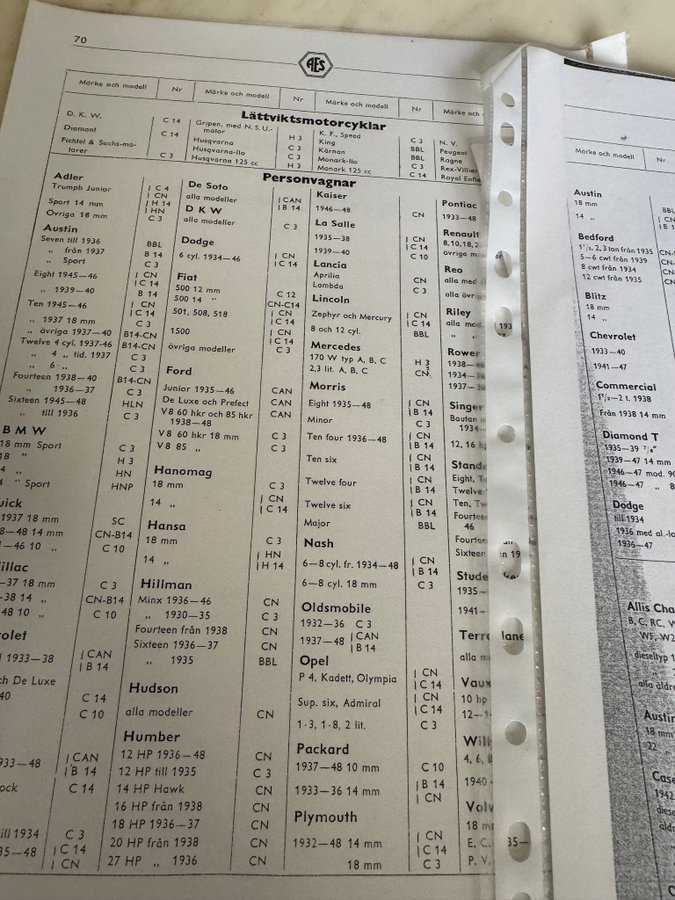 70
AES
Märke och modell Nr Märke och modell Nr Märke och modell Nr Märke och
Lättviktsmotorcyklar
D. K. W. C 14
Diamant C 14
Fichtel & Sachs-mo-
torer C 3
Gripen, med N. S. U.-
motor H 3
Husqvarna C 3
Husqvarna-Ilo C 3
Husqvarna 125 cc H 3
K. F., Speed C 3
King BBL
Kärnan C 3
Monark-Ilo C 3
Monark 125 cc C 14
N. V.
Peugeot
Ragne
Rex-Villier
Royal Enfie
Personvagnar
Adler
Trumph Junior C 4
CN
Sport 14 mm H 14
Övriga 18 mm HN
C 14
Austin
Seven till 1936 BBL
„ från 1937 B 14
„ Sport C 3
Eight 1945—46 CN
C 14
„ 1939—40 B 14
Ten 1945—46 CN
C 14
„ 1937 18 mm C 3
„ övriga 1937—40 B14-CN
Twelve 4 cyl. 1937-46 B14-CN
„ 4 „ tid. 1937 C 3
„ 6 „ C 3
Fourteen 1938—40 B14-CN
„ 1936—37 C 3
Sixteen 1945—48 HLN
„ till 1936 C 3
B M W
18 mm Sport C 3
18 „ H 3
4 „ HN
4 „ Sport HNP
uick
1937 18 mm SC
8—48 14 mm CN-B14
1—46 10 „ C 10
illac
—37 18 mm C 3
—38 14 „ CN-B14
48 10 „ C 10
rolet
l 1933—38 CAN
B 14
ch De Luxe
40 C 14
C 10
933—48 CAN
B 14
ock C 14
ill 1934 C 3
35—48 C 14
CN
De Soto
alla modeller CAN
B 14
D K W
alla modeller C 3
Dodge
6 cyl. 1934—46 CN
C 14
Fiat
500 12 mm C 12
500 14 „ CN-C14
501, 508, 518 CN
C 14
1500 CN
C 14
övriga modeller C 3
Ford
Junior 1935—46 CAN
De Luxe och Prefect CAN
V 8 60 hkr och 85 hkr CAN
1938—48
V 8 60 hkr 18 mm C 3
V 8 85 „ C 3
Hanomag
18 mm C 3
14 „ CN
C 14
Hansa
18 mm C 3
14 „ HN
H 14
Hillman
Minx 1936—46 CN
„ 1930—35 C 3
Fourteen från 1938 CN
Sixteen 1936—37 CN
„ 1935 BBL
Hudson
alla modeller CN
Humber
12 HP 1936—48 CN
12 HP till 1935 C 3
14 HP Hawk CN
16 HP från 1938 CN
18 HP 1936—37 CN
20 HP från 1938 CN
27 HP „ 1936 CN
Kaiser
1946—48 CN
La Salle
1935—38 CN
C 14
1939—40 C 10
Lancia
Aprilia CN
Lambda C 3
Lincoln
Zephyr och Mercury CN
C 14
8 och 12 cyl. BBL
Mercedes
170 W typ A, B, C H 3
2,3 lit. A, B, C CN.
Morris
Eight 1935—48 CN
B 14
Minor C 3
Ten four 1936—48 CN
B 14
Ten six CN
B 14
Twelve four CN
B 14
Twelve six CN
B 14
Major BBL
Nash
6—8 cyl. fr. 1934—48 CN
B 14
6—8 cyl. 18 mm C 3
Oldsmobile
1932—36 C 3
1937—48 CAN
B 14
Opel
P 4, Kadett, Olympia CN
C 14
Sup. six, Admiral CN
C 14
1·3, 1·8, 2 lit. C 3
Packard
1937—48 10 mm C 10
1933—36 14 mm B 14
CN
Plymouth
1932—48 14 mm CN
C 14
18 mm C 3
Pontiac
1933—48
Renault
8, 10, 18, 2
övriga m
Reo
alla med
alla övr
Riley
alla mo 193
Rower
1938—
1934—
1937—
Singer
Bautan
1934—
12, 16 h
Stand
Eight, Te
Twelve
Ten, Tw
Fourtee
46
Fourtee
Sixteen n 19
Stude
1935—
1941—
Terra lane
alla m
Vaux
10 hp
12—1
Will
4, 6, 8
1940
Volv
18 m
E. C. 35—
P. V.
Märke och modell Nr
Austin
18 mm BBL
14 „
Bedford
1½, 2, 3 ton från 1935 CN-
5—6 cwt från 1939 CN-
8 cwt från 1934
12 cwt från 1935
Blitz
18 mm
14 „
Chevrolet
1933—40
1941—47
Commercial
1½—2 t. 1938
Från 1938 14 mm
Diamond T
1935—39 ⅞"
1939—47 14 mm
1946—47 mod. 90
1946—47 „ 8
Dodge
till 1934
1936 med al.-lo
1936—47
Allis Cha
B, C, RC, W
WF, W2
dieseltyp 1
alla äldre
Austin
18 mm
22 „
Case
1942
diese
äldr